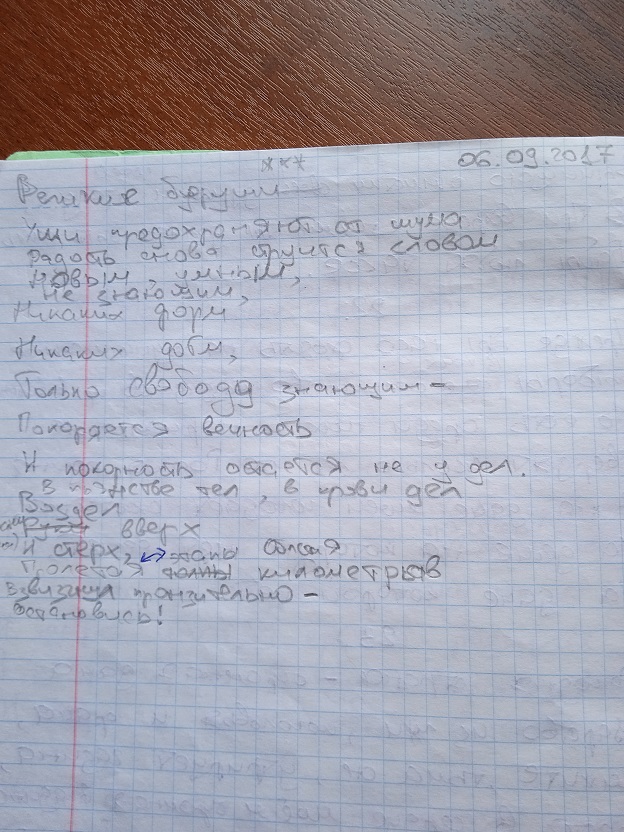 ***
06.09.2017
Великие
Уши предохраняют от шума
Радость снова струится словом
Новым, умным,
Не знающим,
Никаких форм
Никаких догм,
Только свободу знающим -
Покоряется вечность
И покорность остаётся не у дел.
В пьянстве тел, в крови дел
Воздел
вверх
И стерх,
Пролетая толпы километров
Взвизгнул пронзительно -
Остановись!